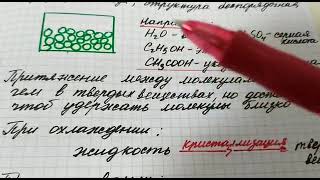 структура беспорядочная
Напри
H₂O - в SO₄ - серная
кислота
C₂H₅OH - э
CH₃COOH - уксу
Притяжение между молекулам
чем в твердых веществах, но доста
чтоб удержать молекулы близко
При охлаждении:
жидкость кристаллизация тве
ве